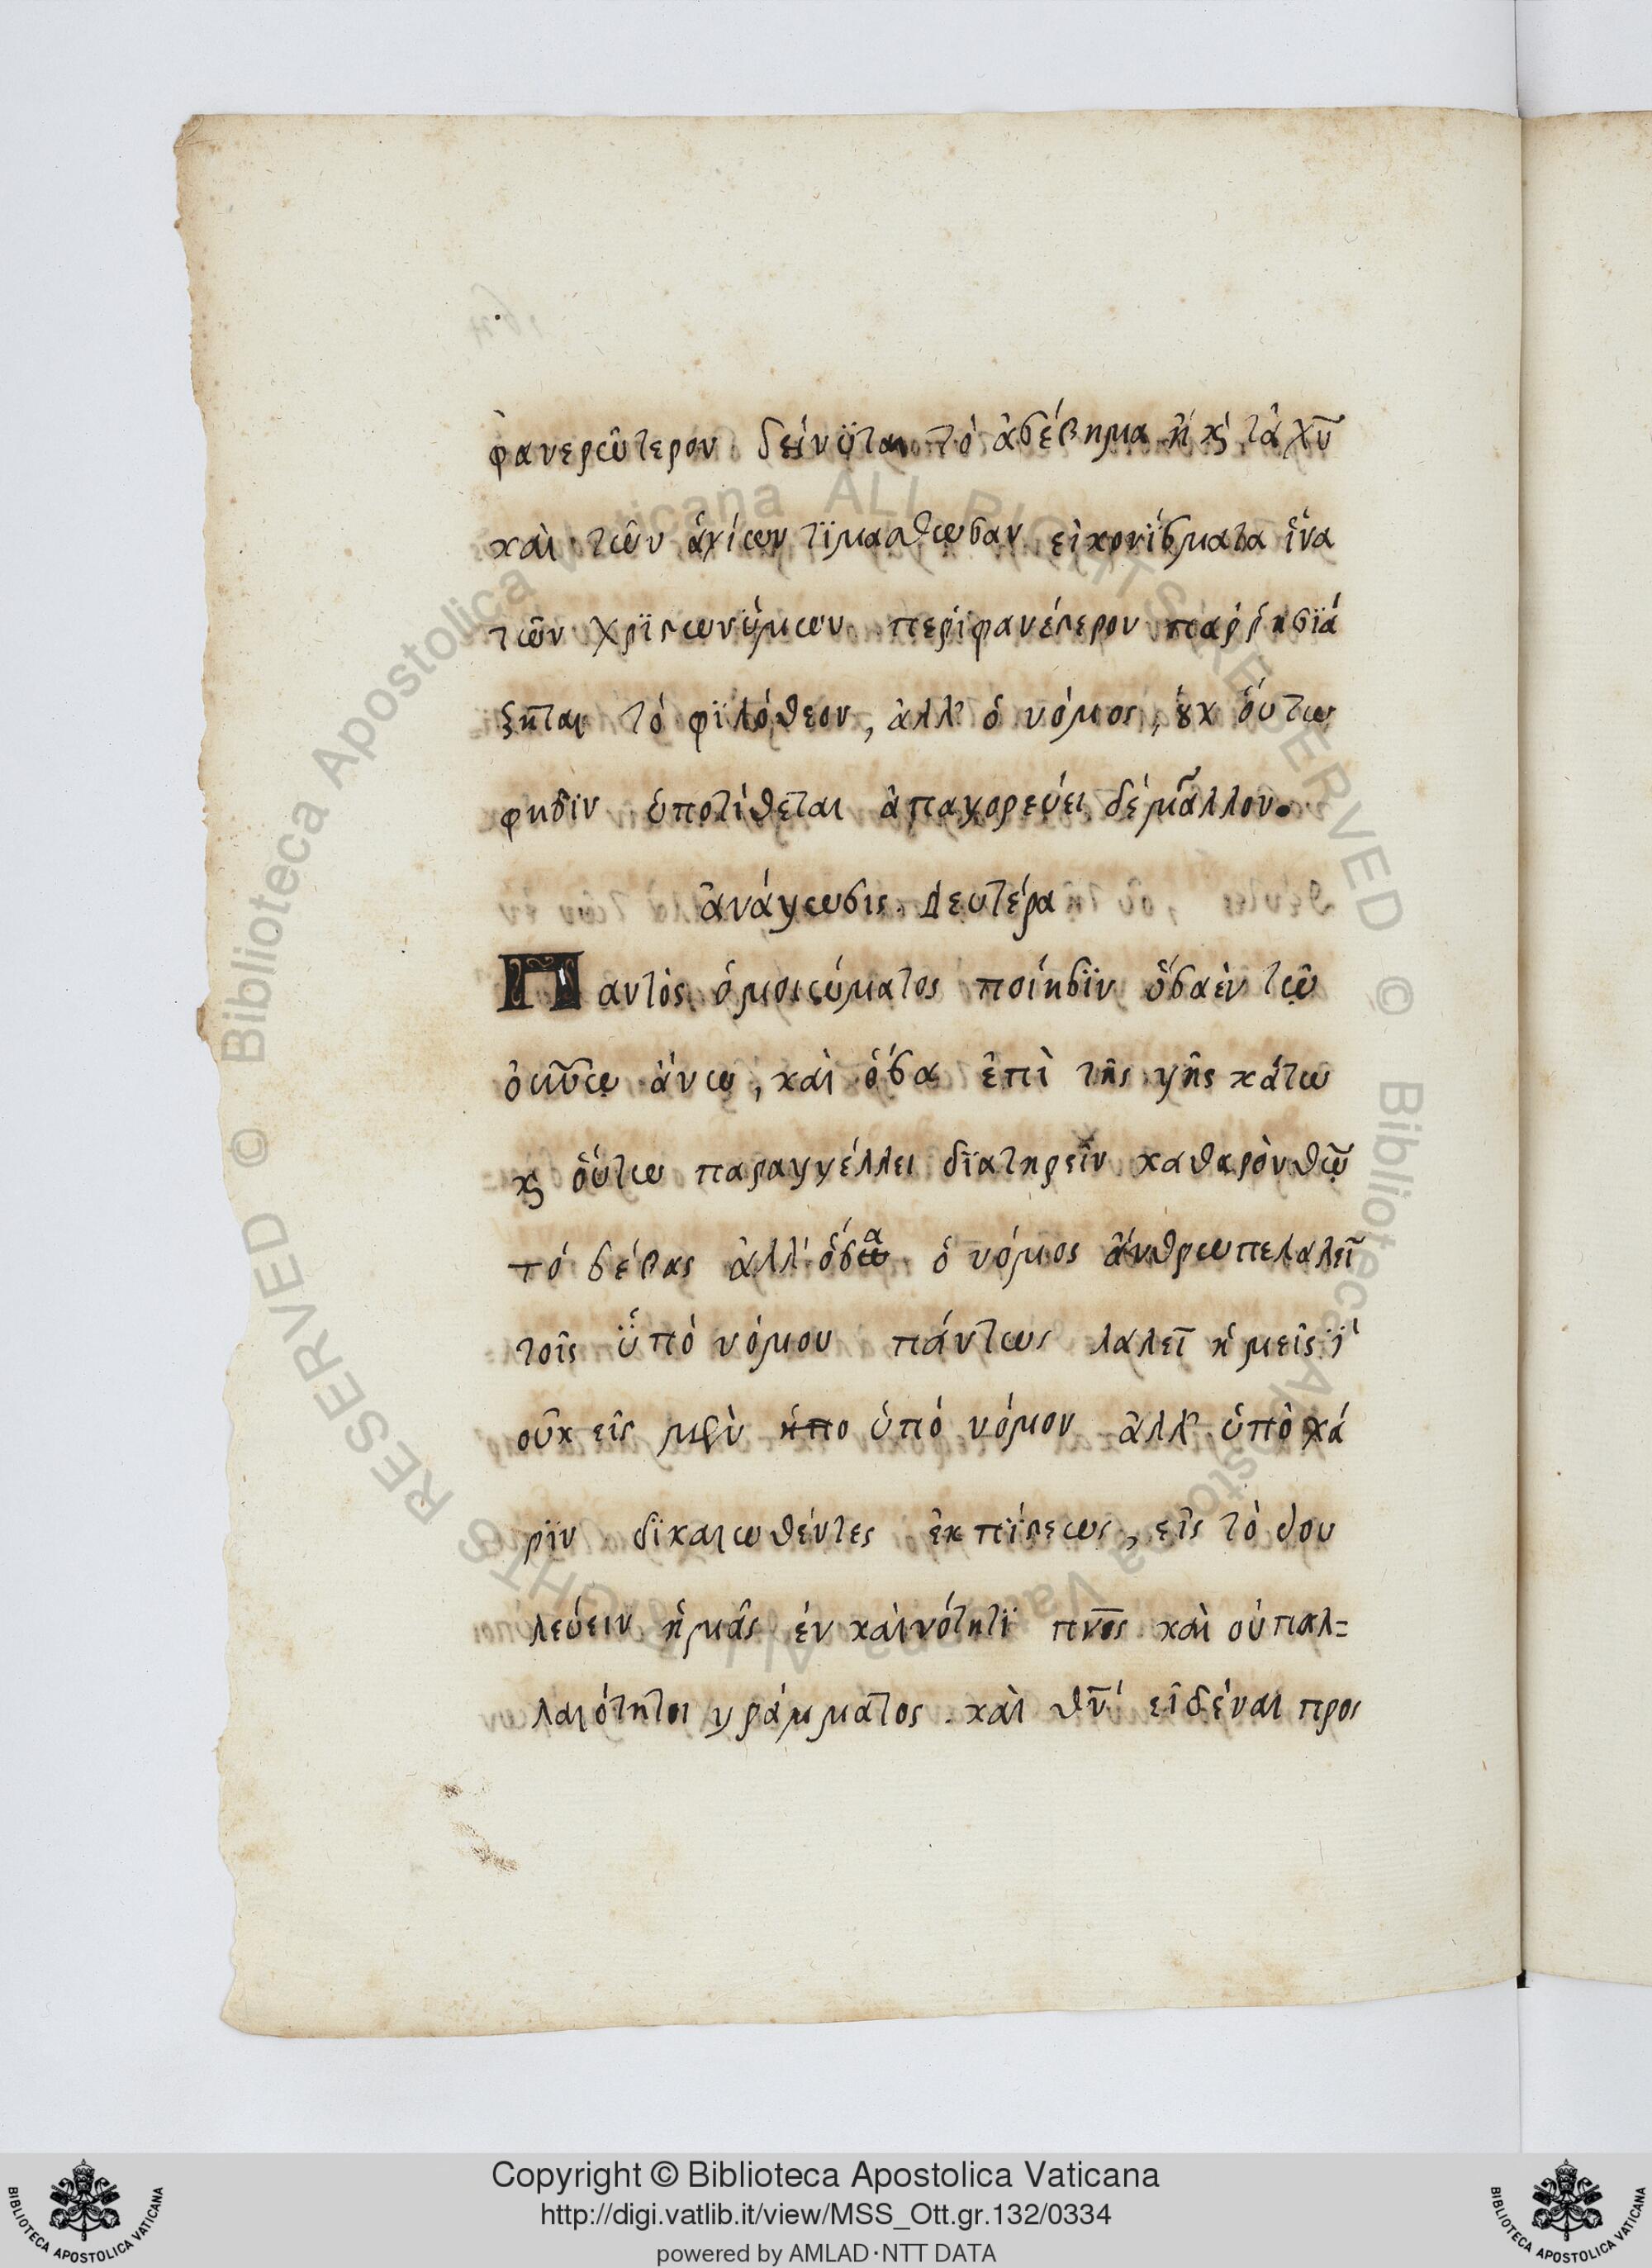 φανερώτερον δείνϋται τὸ ἀσέβημα ἢ κ̀ τὰ χῦ
καὶ τῶν ἁγίων τϊμασθωσαν εἰκονΐσματα ἵνα
τῶν χρϊϛωνΰμων περιφανέϛερον παῤῥησϊά
ζηται τό φϊλόθεον, ἀλλ' ὁ νόμος, ȣ̓χ ὅυτως
φησϊν ὑποτίθεται ἀπαγορεύει δέ μᾶλλον.
ἀνάγωσις. Δευτέρα
Παντὸς ὁμοιώματος ποίησϊν ὅσα ἐν τῷ
ὀυνῶ ἄνω, καὶ ὅσα ἐπὶ τῆς γῆς κάτω
κ̀ ὅυτω παραγγέλλει δϊατηρεῖν καθαρὸν θῶ
τό σέβας ἀλλ' ὅσα ὁ νόμος ἄνθρωπε λαλεῖ
τοῖς ὑπό νόμου πάντως λαλεῖ ἡμεῖς
οὔκ εἰς μὲν ὑπό νόμον ἀλλ' ὑπὸ χά
ρϊν δϊκαιωθέντες ἐκ πϊϛεως, εἰς τὸ δου
λεύειν ἡμᾶς ἐν καινότητϊ πνος καὶ οὐ παλ=
λαιότητοι γράμματος. καὶ θν́ εἰδέναι προς
Copyright © Biblioteca Apostolica Vaticana
http://digi.vatlib.it/view/MSS_Ott.gr.132/0334
powered by AMLAD·NTT DATA
BIBLIOTECA APOSTOLICA VATICANA
BIBLIOTECA APOSTOLICA VATICANA